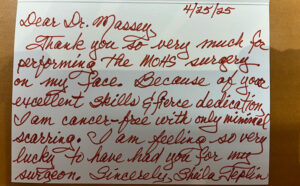 4/25/25
Dear Dr. Massey,
Thank you so very much for
performing the MOHS surgery
on my face. Because of your
excellent skills & force dedication,
I am cancer-free with only minimal
scarring. I am feeling so very
lucky to have had you for my
surgeon. Sincerely, Sheila